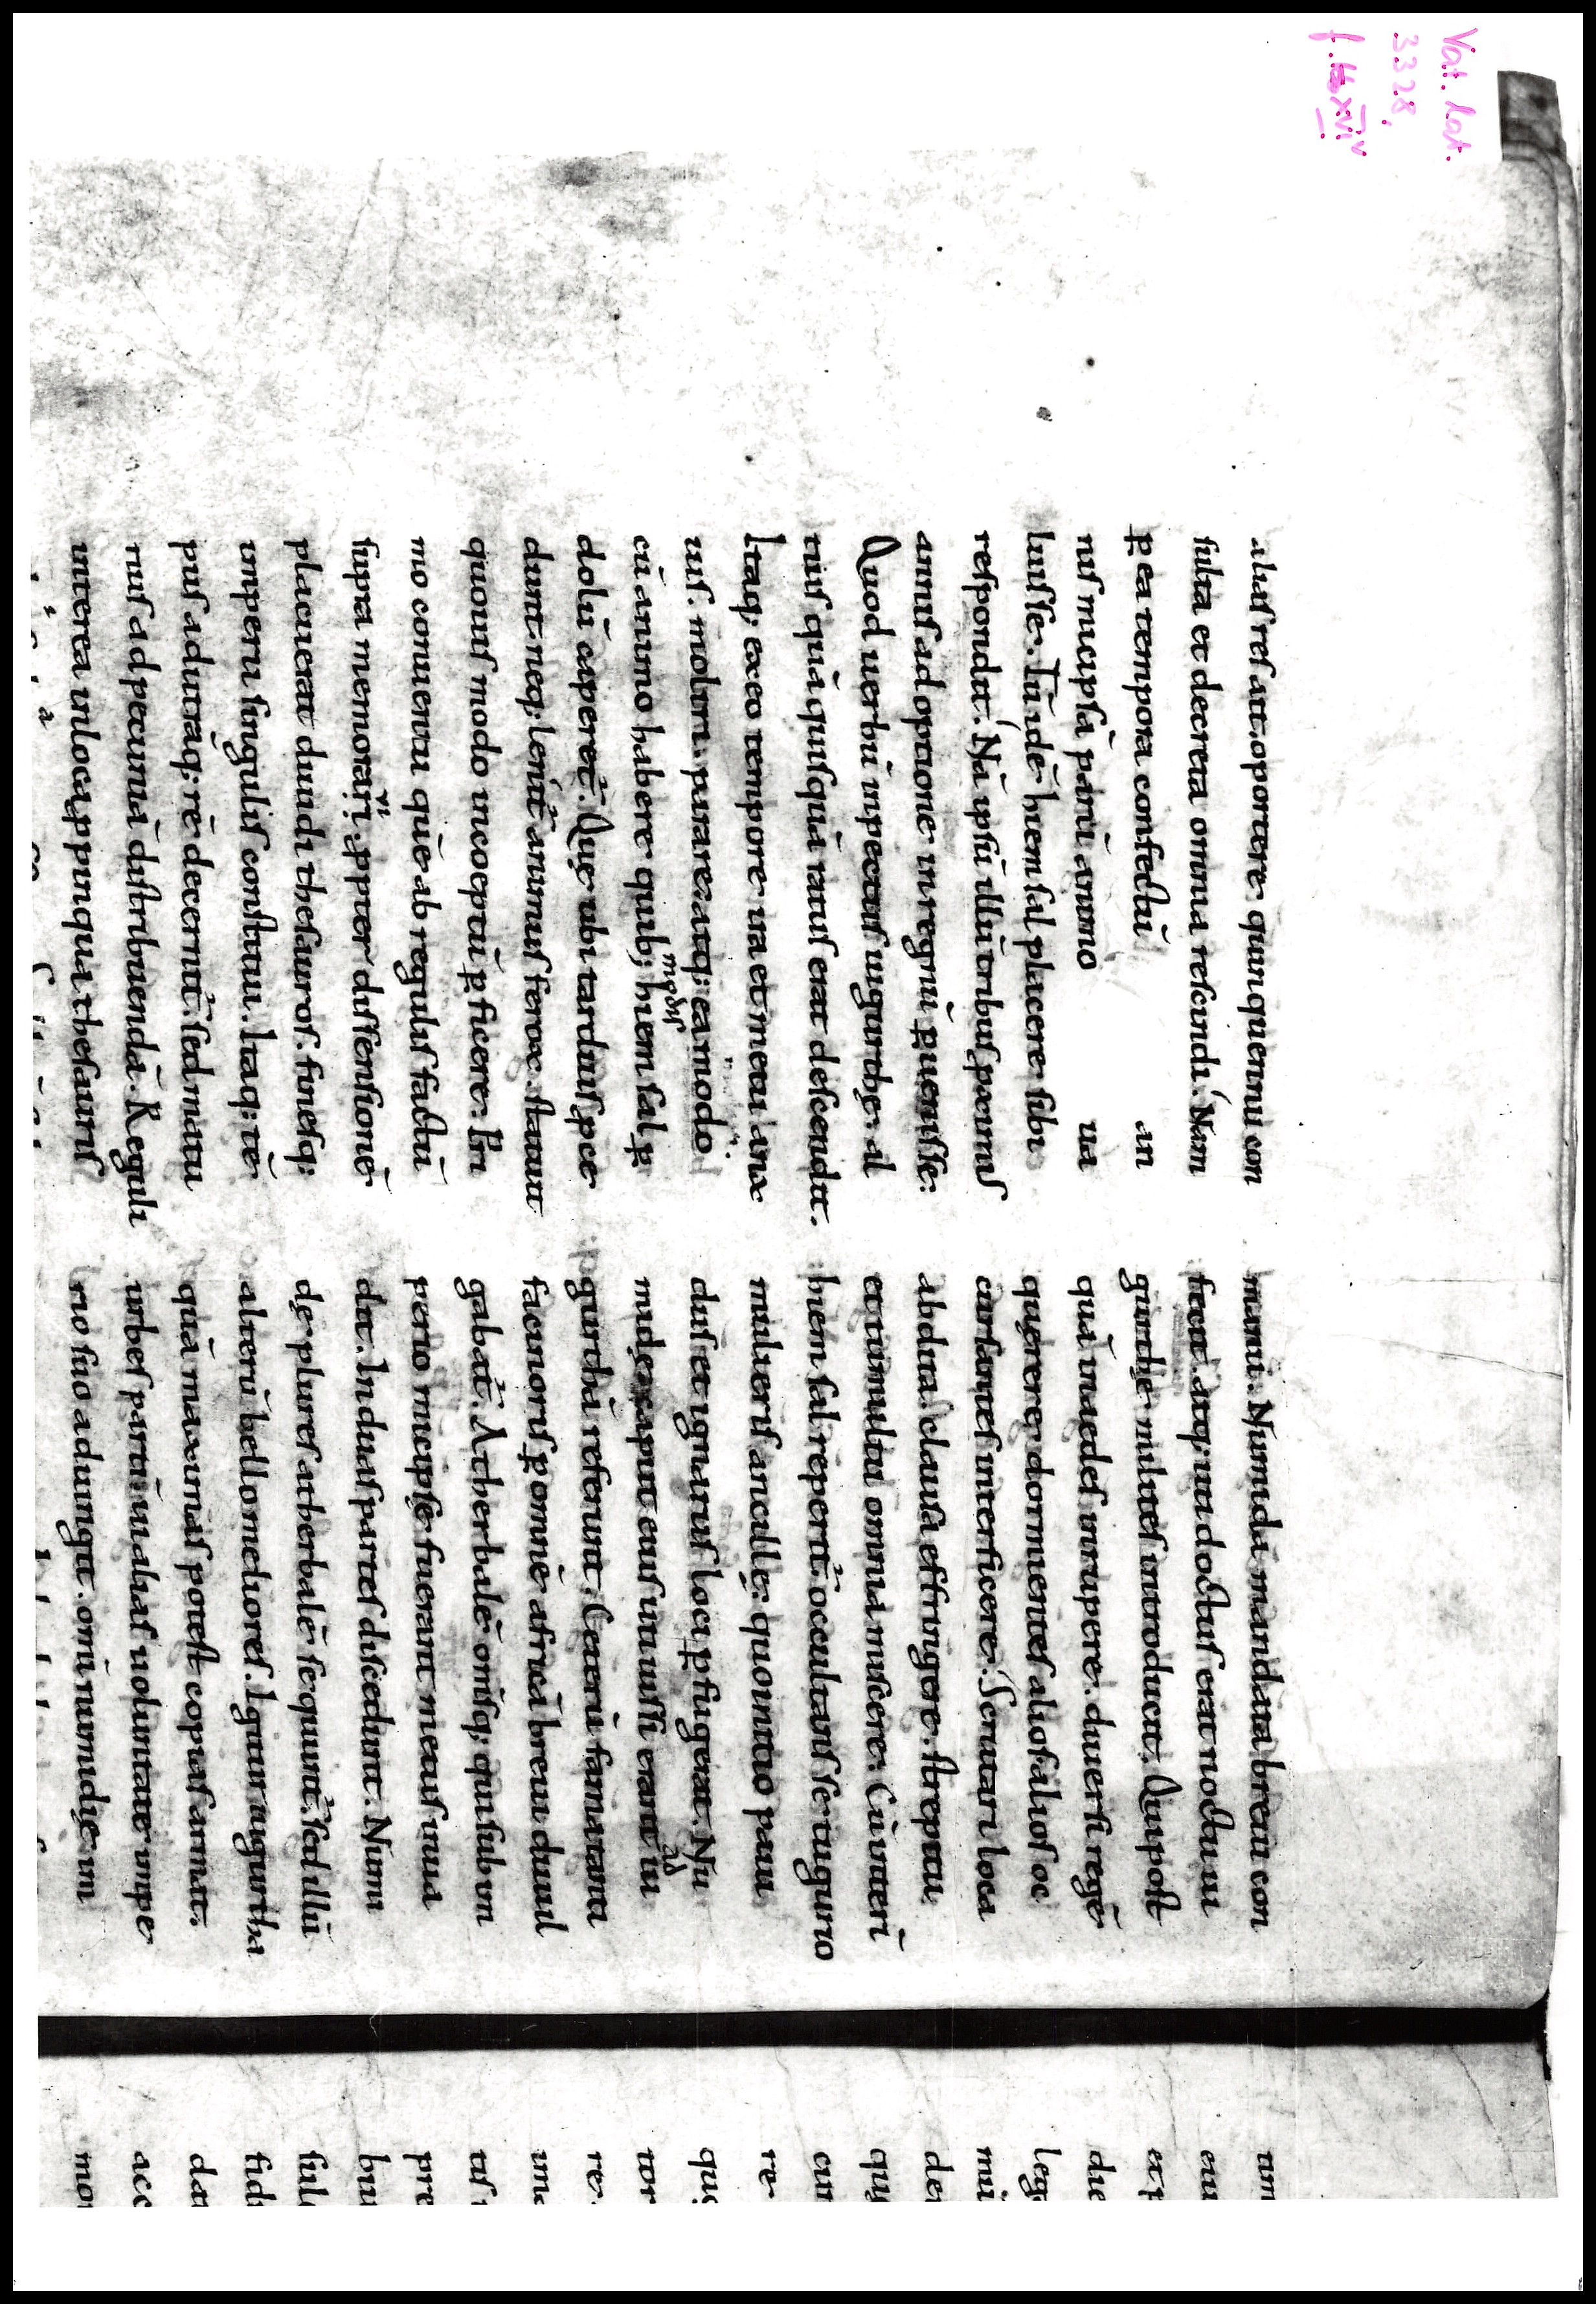 Vat. Lat.
3328,
alias res ait. oportere quinquennii con
sulta et decreta omnia rescindi. Nam
ꝑ ea tempora confectū an
nis micipsā parū animo ua
luisse. Tū idē hiemsal placere sibi
respondit. Nā ipsū illū tribus ꝓximis
annis adoptione in regnū ꝑuenisse.
Quod uerbū in pectus iugurthe al
tius quā quisquā ratus erat descendit.
Itaq; ex eo tempore ira et metu anx
ius. moliri. parare atq; ea modo
cū animo habere quib; modis hiemsal ꝑ
dolū caperet̄. Quę ubi tardius ꝓce
dunt neq; lenit̄ animus ferox. statuit
quouis modo inceptū ꝑficere. Pri
mo conuentu quē ab regulis factū
supra memoraui. ꝓpter dissensionē
placuerat diuidi thesauros. finesq;
imperii singulis constitui. Itaq; tē
pus ad utrāq; rē decernit̄. sed matu
rius ad pecuniā distribuendā. Reguli
interea in loca ꝓpinqua thesauris
manu. Numida mandata breui con
ficit. atq; uti doctus erat noctu iu
gurthę milites introducit. Qui post
quā in aedes irrupere. diuersi regē
quęrere. dormientes alios. alios oc
cursantes interficere. Scrutari loca
abdita. clausa effringere. strepitu
et tumultu omnia miscere. Cū interī
hiemsal reperit̄ occultans se tugurio
mulieris ancillę. quo initio paui
dus et ignarus loci ꝑfugerat. Nu
midę caput eius uti iussi erant ad iu
gurthā referunt. Ceterū fama tanti
facinoris ꝑ omnē africā breui diuul
gabat̄. Atherbalē om̄sq; qui sub im
perio micipsę fuerant metus inua
dit. In duas partes discedunt. Numi
dę. plures atherbalē sequunt̄. sed illū
alterū bello meliores. Igitur iugurtha
quā maximas potest copias armat.
urbes partī ui alias uoluntate impe
rio suo adiungit. omī numidię im